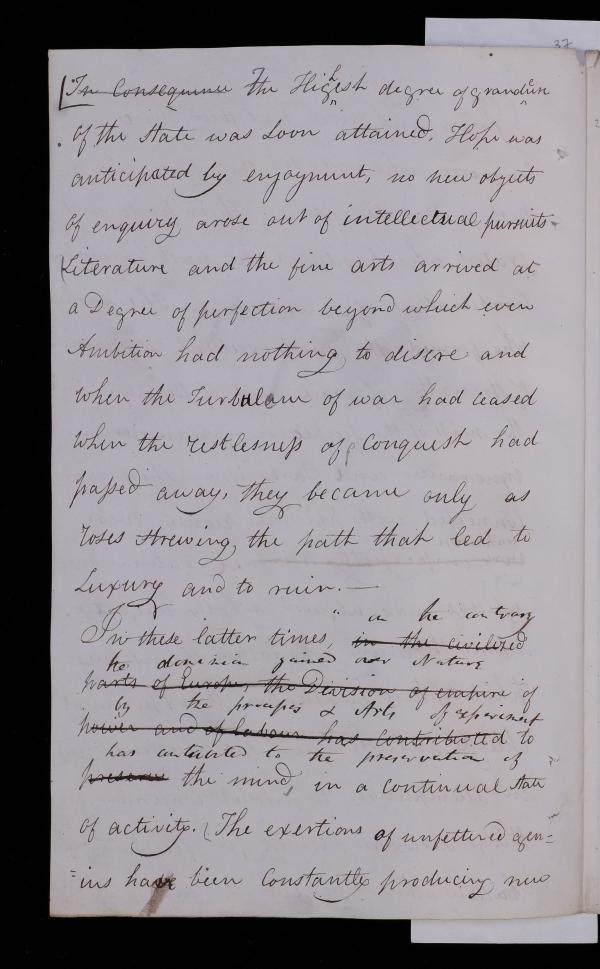 37
[In Consequence The Highest degree of grandeure
of the State was soon attained. Hope was
anticipated by enjoyment, no new objects
of enquiry arose out of intellectual pursuits-
(Literature and the fine arts arrived at
a Degree of perfection beyond which even
Ambition had nothing to discre and
when the Turbulence of war had ceased
when the restlesness of Conquest had
passed away, they became only as
roses strewing the path that led to
Luxury and to ruin.—
" on the contrary
In these latter times, in the civilized
the dominion gained over Nature
parts of Europe, the Division of empire of
by the processes & Arts of experiment
power and of labour has contributed to
has contributed to the preservation of
preserve the mind, in a continual state
of activity. (The exertions of unfettered gen=
=ius have been Constantly producing new